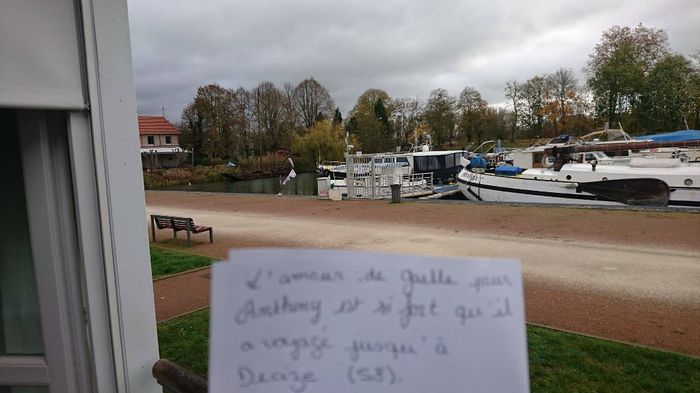 L'amour de Gaelle pour
Anthony est si fort qu'il
a voyagé jusqu'à
Decize (58).